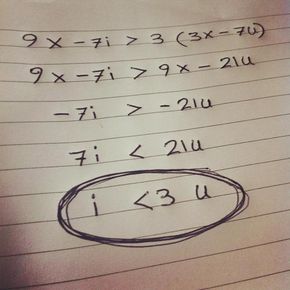 9x - 7i > 3 (3x - 7u)
9x - 7i > 9x - 21u
-7i > -21u
7i < 21u
i < 3 u